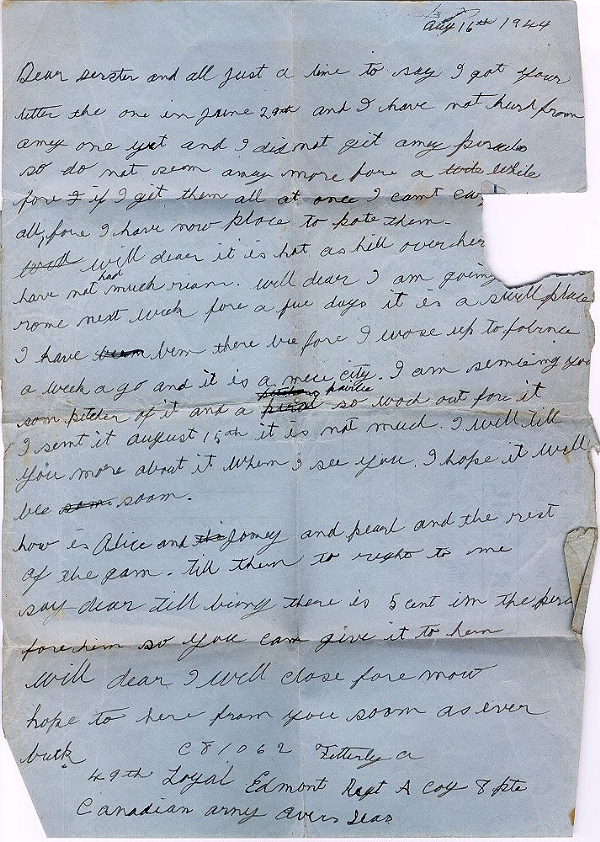 Aug 16th 1944
Dear serster and all just a line to say I got your
letter the one in june 29th and I have not hurd from
amey one yet and I did not git amey
so do not seon amey more fore a while
fore if I git them all at once I camt
all, fore I have now place to pote them.
will dear it is hot as hill over her
have not had much riam. will dear I am going
rome next week fore a fue days it is a swill place
I have bem there bee fore I wose up to
a week a go and it is a mice city. I am semding you
som pitcher of it and a so woch out fore it
I semt it august 15th it is not much. I will till
you more about it when I see you. I hope it will
bee soom.
how is Alice and Jomey and pearl and the rest
of the gam. till them to right to me
say dear till there is 5 cent im the
fore him so you cam give it to hem
will dear I will close fore mow
hope to here from you soom as ever
buck
C81062 Fetterly A
49th Loyal Edmont Regt A coy 8 pte
Canadian army overs seas